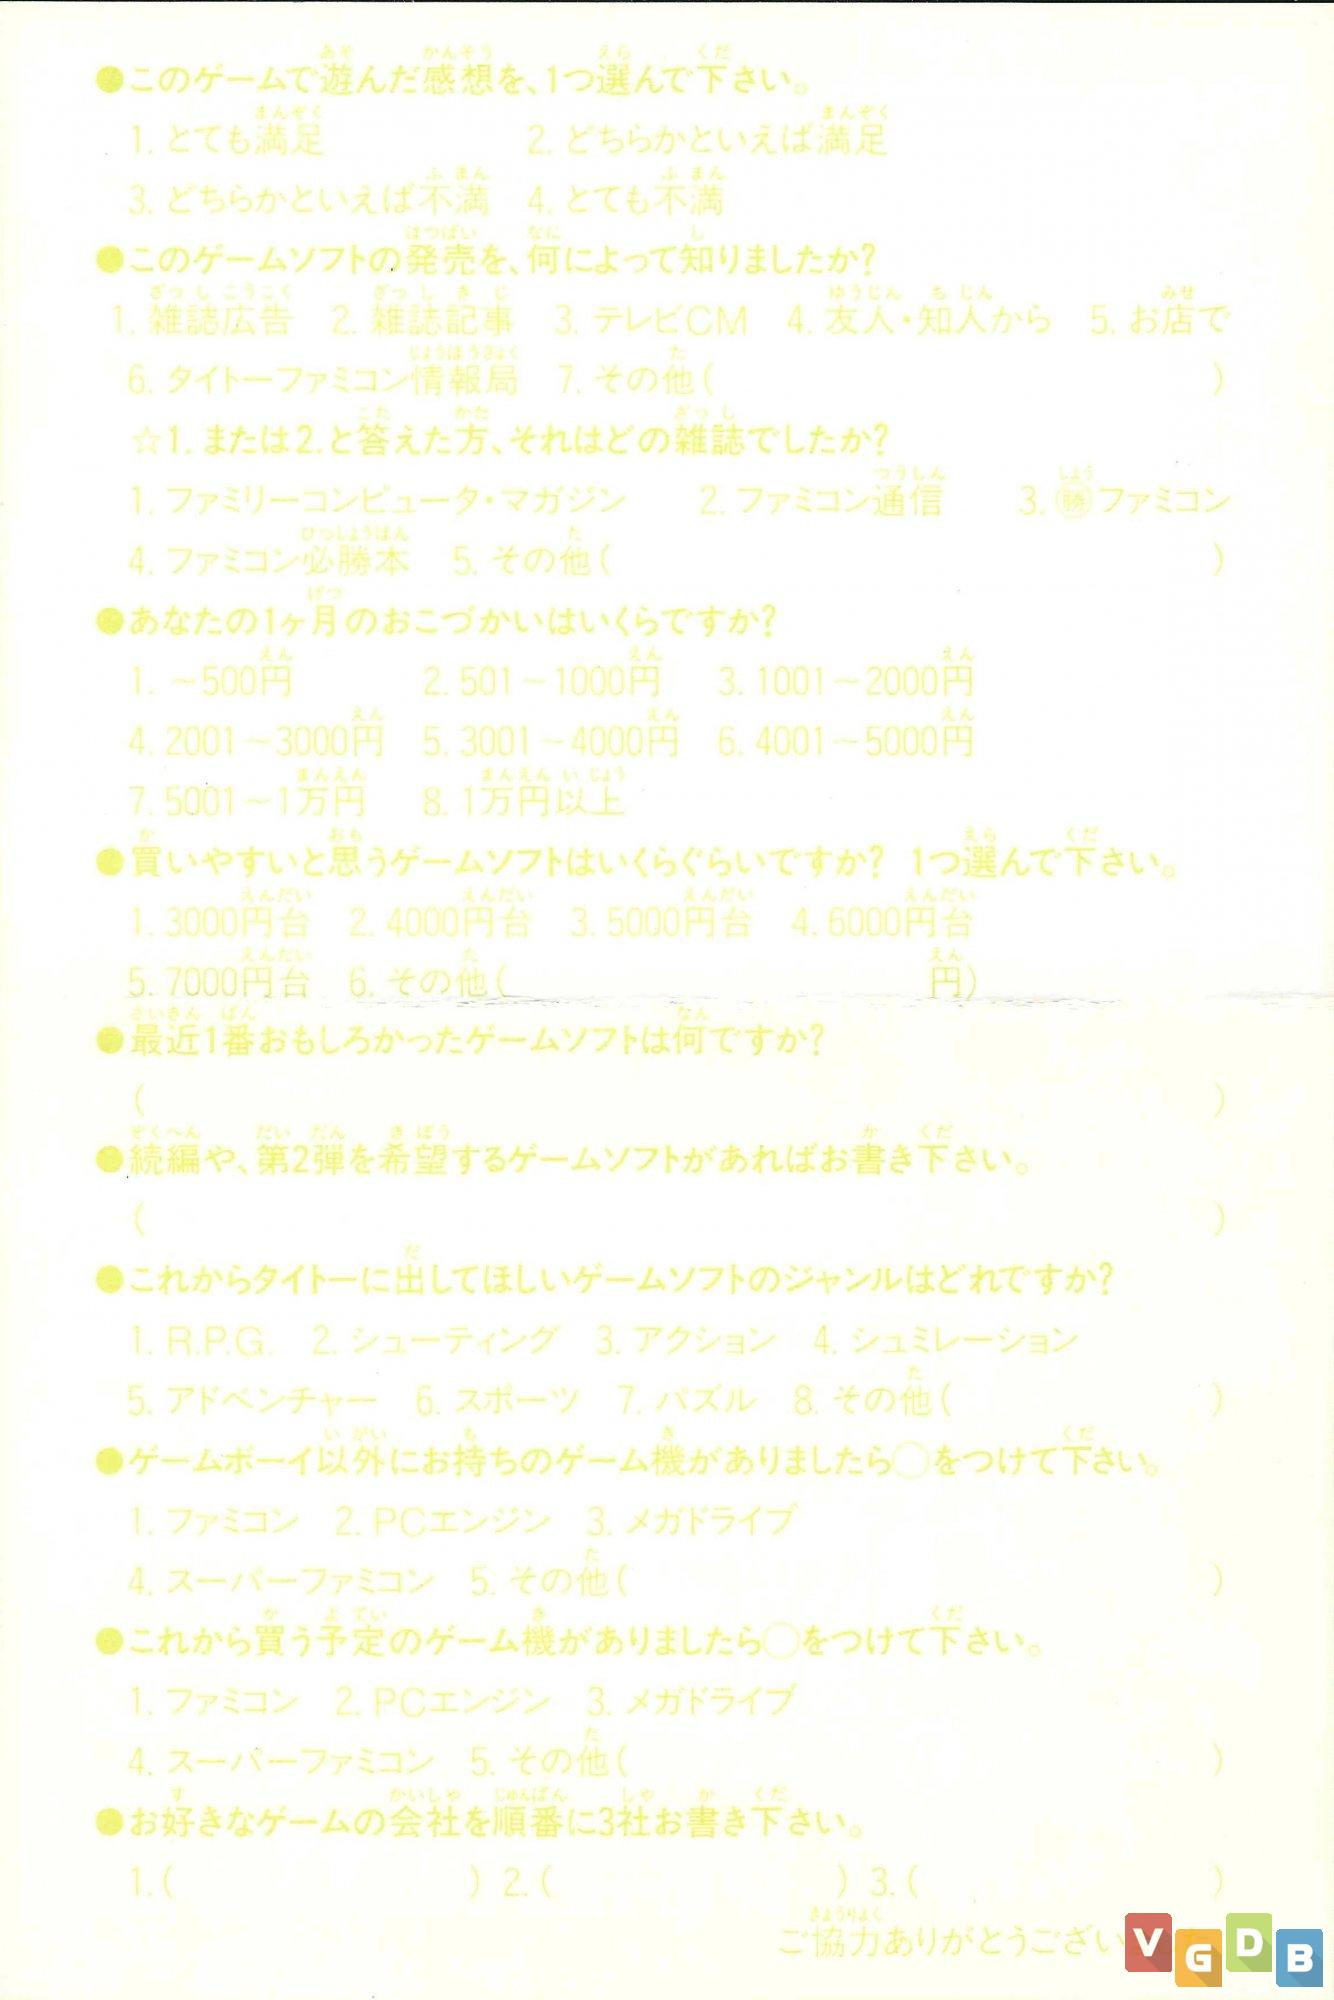 ●このゲームで遊んだ感想を、1つ選んで下さい。
1. とても満足 2. どちらかといえば満足
3. どちらかといえば不満 4. とても不満
●このゲームソフトの発売を、何によって知りましたか?
1. 雑誌広告 2. 雑誌記事 3. テレビCM 4. 友人・知人から 5. お店で
6. タイトーファミコン情報局 7. その他( )
☆1. または2. と答えた方、それはどの雑誌でしたか?
1. ファミリーコンピュータ・マガジン 2. ファミコン通信 3. ㊝ファミコン
4. ファミコン必勝本 5. その他( )
●あなたの1ヶ月のおこづかいはいくらですか?
1. ~500円 2. 501~1000円 3. 1001~2000円
4. 2001~3000円 5. 3001~4000円 6. 4001~5000円
7. 5001~1万円 8. 1万円以上
●買いやすいと思うゲームソフトはいくらぐらいですか? 1つ選んで下さい。
1. 3000円台 2. 4000円台 3. 5000円台 4. 6000円台
5. 7000円台 6. その他( 円)
●最近1番おもしろかったゲームソフトは何ですか?
( )
●続編や、第2弾を希望するゲームソフトがあればお書き下さい。
( )
●これからタイトーに出してほしいゲームソフトのジャンルはどれですか?
1. R.P.G. 2. シューティング 3. アクション 4. シュミレーション
5. アドベンチャー 6. スポーツ 7. パズル 8. その他( )
●ゲームボーイ以外にお持ちのゲーム機がありましたら○をつけて下さい。
1. ファミコン 2. PCエンジン 3. メガドライブ
4. スーパーファミコン 5. その他( )
●これから買う予定のゲーム機がありましたら○をつけて下さい。
1. ファミコン 2. PCエンジン 3. メガドライブ
4. スーパーファミコン 5. その他( )
●お好きなゲームの会社を順番に3社お書き下さい。
1. ( ) 2. ( ) 3. ( )
ご協力ありがとうござい
VGDB